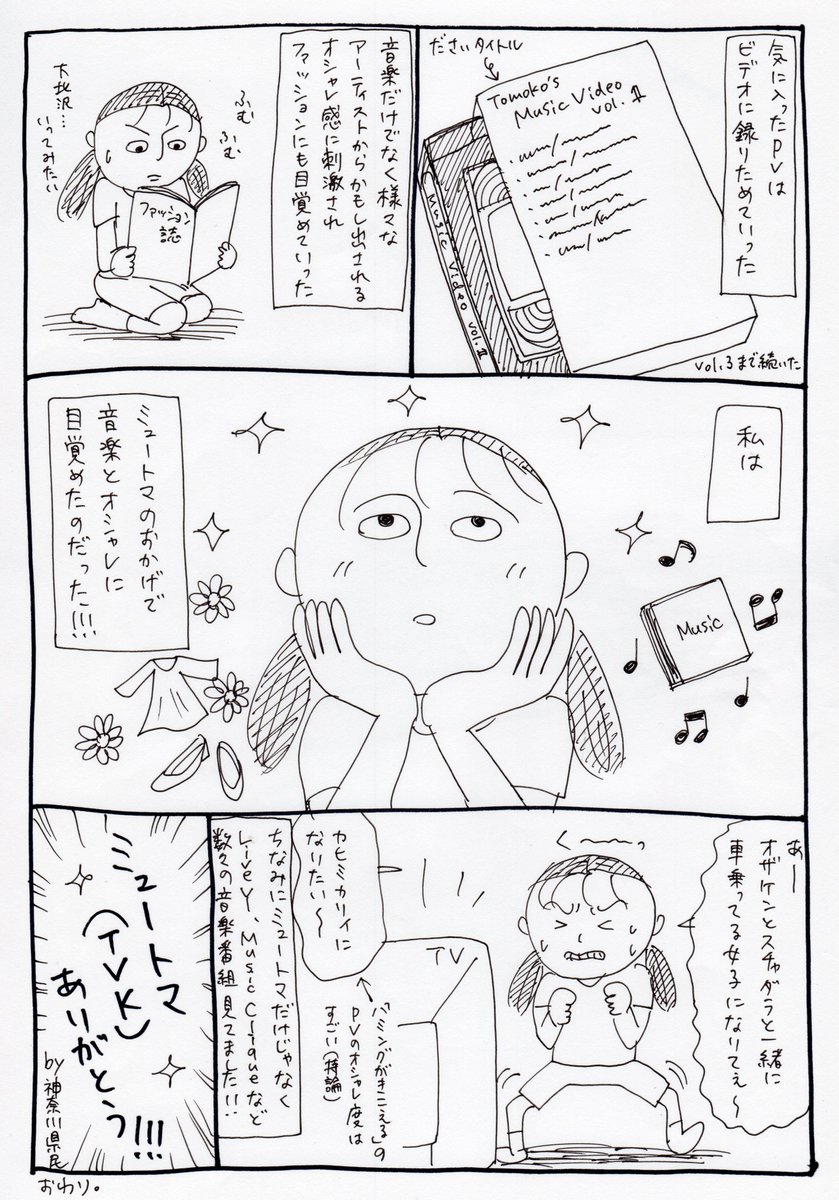 気に入ったPVは
ビデオに録りためていった
ださいタイトル
Tomoko's
Music Video
vol.1
Music Video vol.1
vol.3まで続いた
音楽だけでなく様々な
アーティストからかもし出される
オシャレ感に刺激され
ファッションにも目覚めていった
ふむ
ふむ
下北沢…
いってみたい
ファッション
誌
私は
Music
ミュートマのおかげで
音楽とオシャレに
目覚めたのだった!!!
あー
オザケンとスチャダラと一緒に
車乗ってる女子になりてぇ〜
TV
カヒミカリィに
なりたい〜
「ハミングがきこえる」の
PVのオシャレ度は
すごい(持論)
ちなみにミュートマだけじゃなく
Live Y、Music Cliqueなど
数々の音楽番組見てました!!!
ミュートマ
(TVK)
ありがとう!!!
by神奈川県民
おわり。